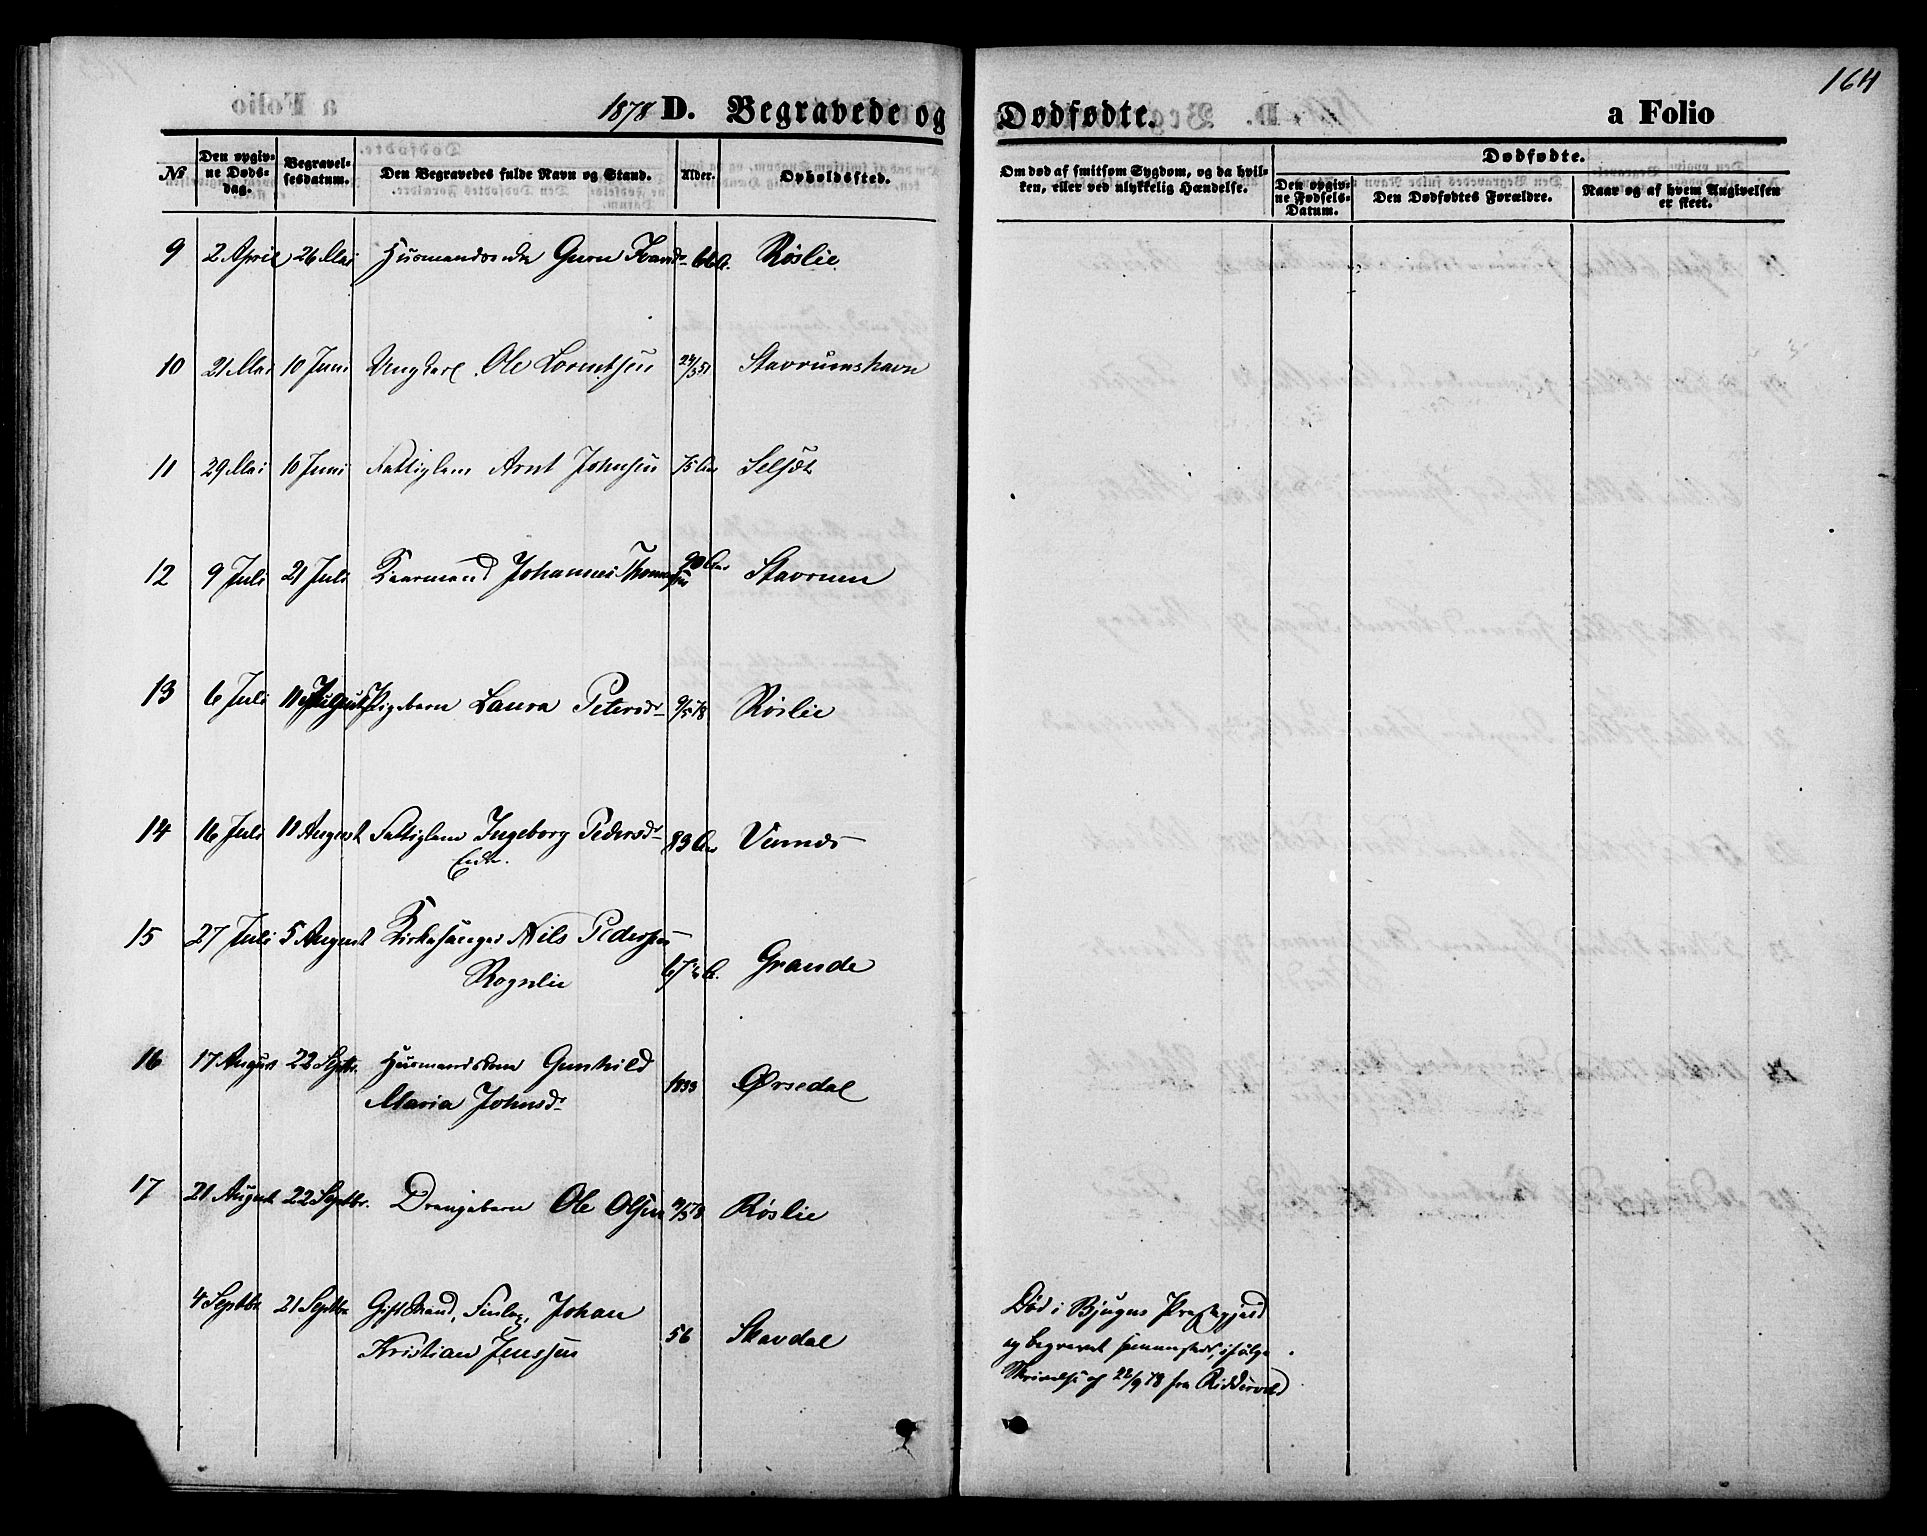 164
1878 D. Begravede og Dødfødte. a Folio
No Den opgivne Dødsdag. Begravelsesdatum. Den Begravedes fulde Navn og Stand. Alder. Opholdssted. Om død af smitsom Sygdom, og da hvilken, eller ved ulykkelig Hændelse. Dødfødte. Den opgivne Fødsels-Datum. Den Dødfødtes Forældre. Naar og af hvem Angivelsen er skeet.
9 2 April 26 Mai Husmandsenke Guru 66 A. Røslie
10 21 Mai 10 Juni Ungkarl Ole Lorentsen 24/3 51 Stavrumshavn
11 29 Mai 10 Juni Fattiglem Arnt Johnsen 75 Aar Selsæt
12 9 Juli 21 Juli Kaarmand Johannes Thomassen 90 Aar Stavrum
13 6 Juli 11 August Pigebarn Laura Petersdr 9/5 78 Røslie
14 16 Juli 11 August Fattiglem Ingeborg Pedersdr 83 Aar
Enke.
15 27 Juli 5 August Kirkesanger Nils Pedersen
Rognlie 67 A. Grande
16 17 August 22 Septbr. Husmandskone Gunhild
Maria Johnsdr 1833 Ørsedal
17 21 August 22 Septbr. Drengebarn Ole Olsen /5 78 Røslie
4 Septbr 21 Septbr Gift Mand, Johan
Kristian Jenssen 56 Skavdal
Død i Bjugns Præstegjeld
og begravet sammesteds, ifølge
Skrivelse af 22/9 78 fra Ridderv